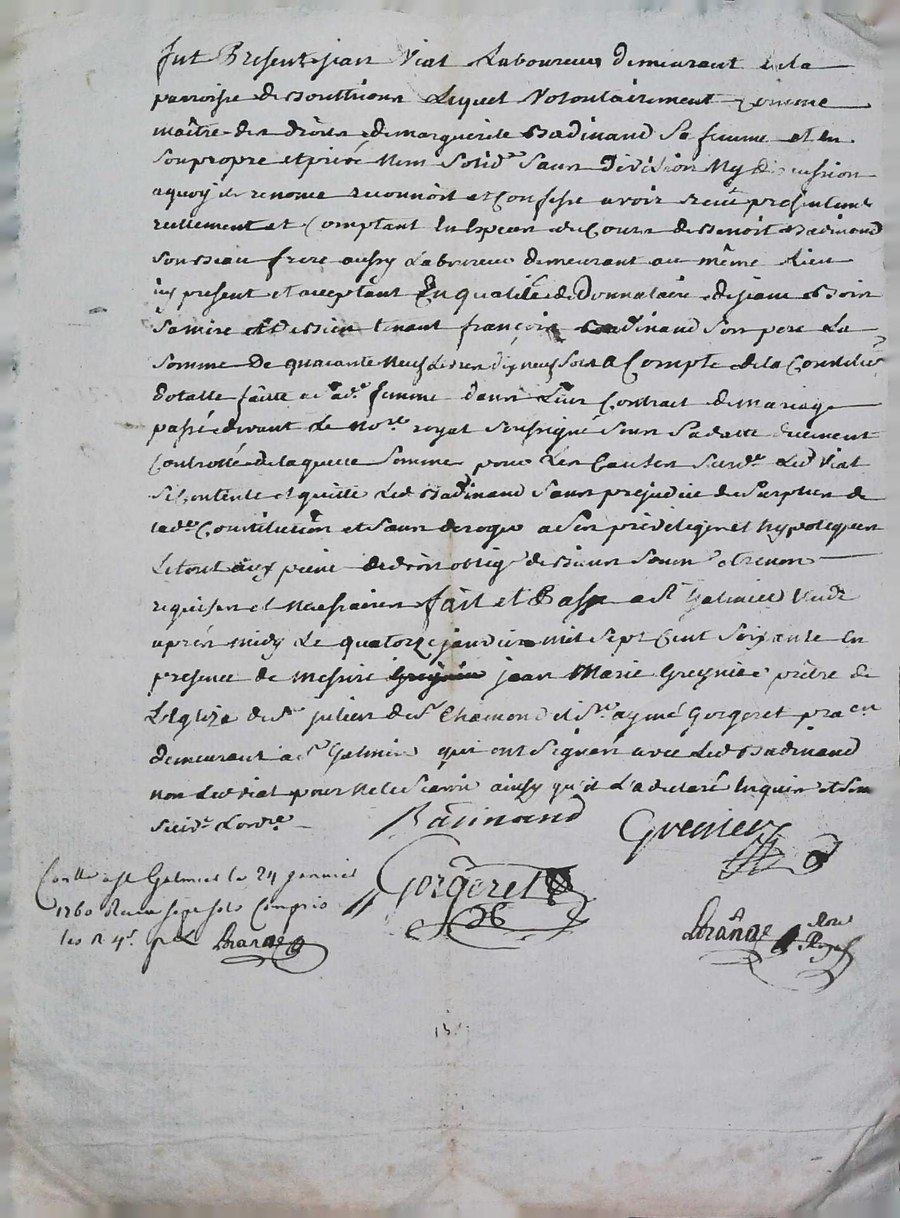 fut Présent jean Viat Laboureur demeurant de la
parroisse de Bouttheon Lequel Volontairement comme
maître des droits de marguerite Badinand Sa femme et en
Son propre et privé Nom Solid.t Sans Division Ny discussion
aquoy il renonce reconnoit et Confesse avoir reçu présentem.t
reellement et Comptant En Espèces de Cours de Benoit Badinand
Son Beau frere aussy Laboureur demeurant au même Lieu
icy présent et acceptant En qualité de Donnataire de jeane
Sa mère et tenant françois Badinand Son pere La
Somme De quarante Neuf Livres dix neuf Sols A Compte de la Constitu.on
dotalle faitte a lad.e femme dans Leur Contract de mariage
passé devant Le No.re royal Soussigné Sous Sa datte duement
Controllé de laquelle Somme pour Les Causes Susd.e Led Viat
Se Contente et quitte Led Badinand Sans préjudice du Surplus de
lad.e Constitution et Sans deroger a Ses privileges et hypoteques
Le tout aux peine de droit oblig.on de Biens Soum.on et renon.on
requises et Necessaires fait et Passé a S.t Galmier
après midy Le quatorze janvier mil Sept Cent Soixante En
présence de Messire jean Marie Greynier prêtre de
L'Eglize de S.t julien de S.t Chamond et S.r aymé Gorgeret pra.en
demeurant a S.t Galmier qui ont Signés avec Led Badinand
non Led Viat pour Ne Le Scavoir ainsy qu'il L'a déclaré Enquis et Som.é
Suiv.t L'ord.e
Badinand
Grenier
Con.llé a St Galmier le 24 janvier
1760 Reçu seze sols Compris
les n 4.s p.r
Gorgeret